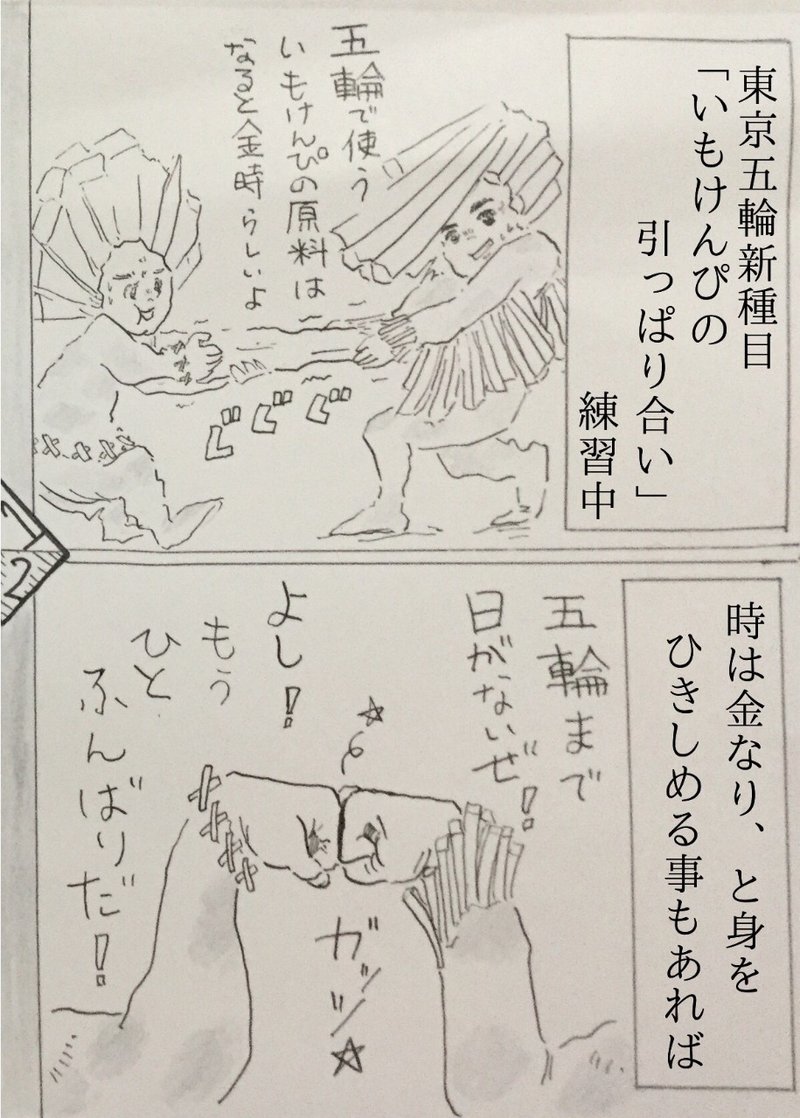 東京五輪新種目
「いもけんぴの
引っぱり合い」
練習中
五輪で使う
いもけんぴの原料は
なると金時らしいよ
グググ
1
2
時は金なり、と身を
ひきしめる事もあれば
五輪まで
日がないぜ!
よし!
もう
ひと
ふんばりだ!
ガッツ☆